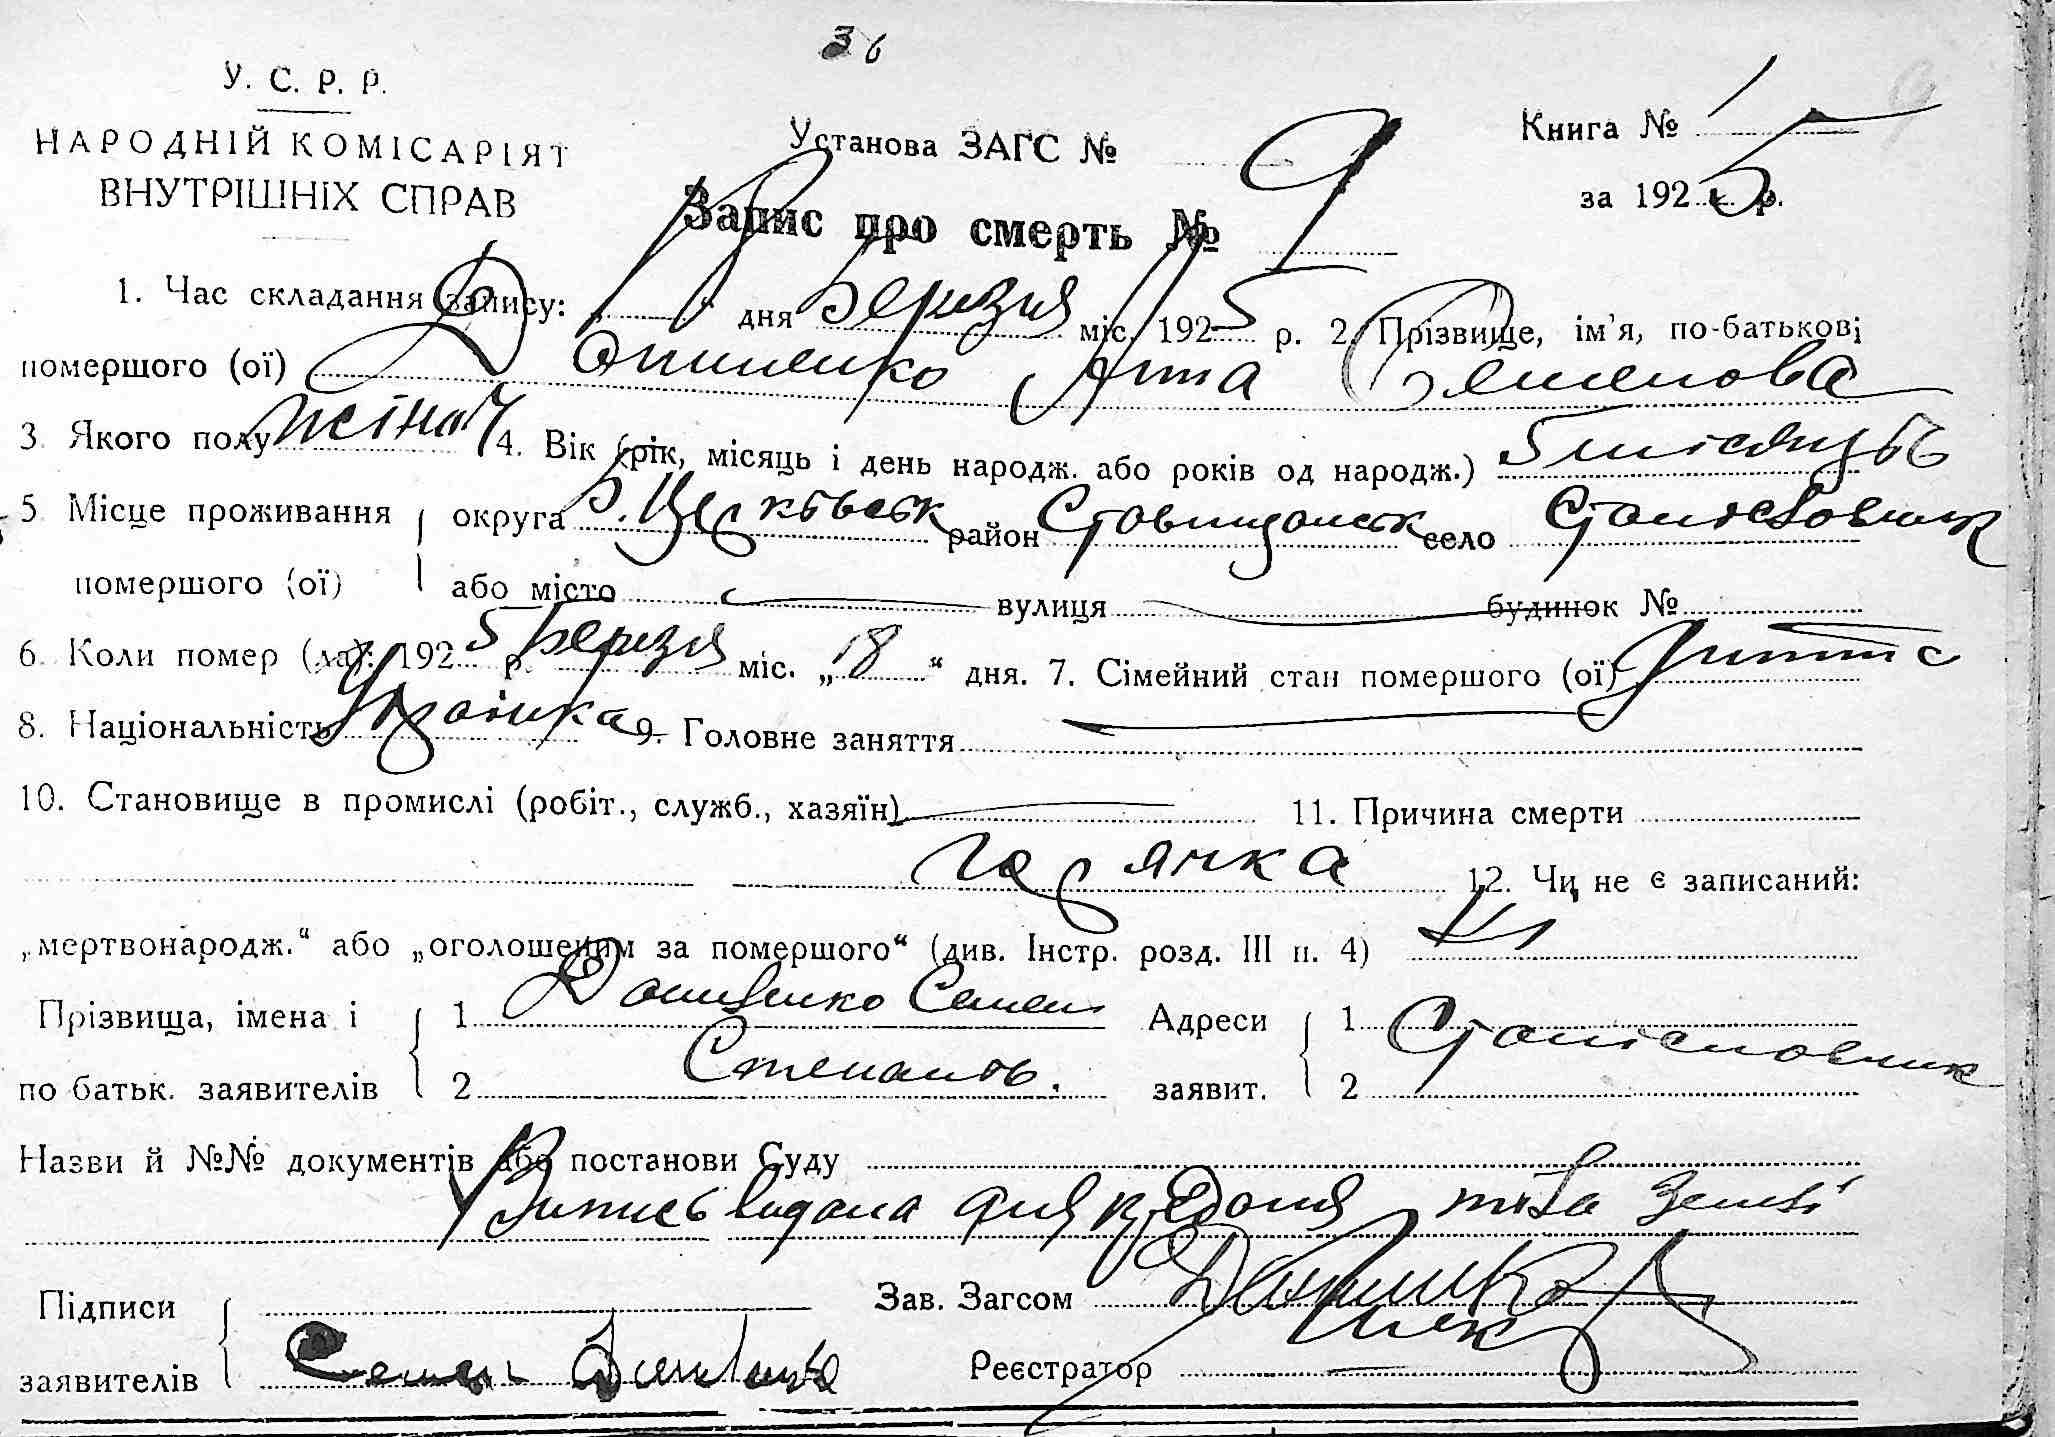 36
У. С. Р. Р.
НАРОДНІЙ КОМІСАРІЯТ
ВНУТРІШНІХ СПРАВ
Установа ЗАГС №
Книга № 1
за 1925 р.
Запис про смерть № 9
1. Час складання запису: „ “ дня Березня міс. 1925 р. 2. Прізвище, ім'я, по-батькові
помершого (ої) Анна Семенова
3. Якого полу жіноч 4. Вік (рік, місяць і день народж. або років од народж.) 5 місяцьв
5. Місце проживання округа Б. Церквськ район Ставищанськ село Станіславчик
помершого (ої) або місто вулиця будинок №
6. Коли помер (ла): 1925 р. Березня міс. „18“ дня. 7. Сімейний стан помершого (ої) дитина
8. Національність Українка 9. Головне заняття
10. Становище в промислі (робіт., служб., хазяїн) 11. Причина смерти
горячка 12. Чи не є записаний:
„мертвонародж.“ або „оголошеним за помершого“ (див. Інстр. розд. III п. 4) Ні
Прізвища, імена і 1 Семен Адреси 1 Станіславчик
по батьк. заявителів 2 Степанов. заявит. 2
Назви й №№ документів або постанови Суду
Випись видана для предання тіла землі
Підписи Зав. Загсом
заявителів Семен Реєстратор